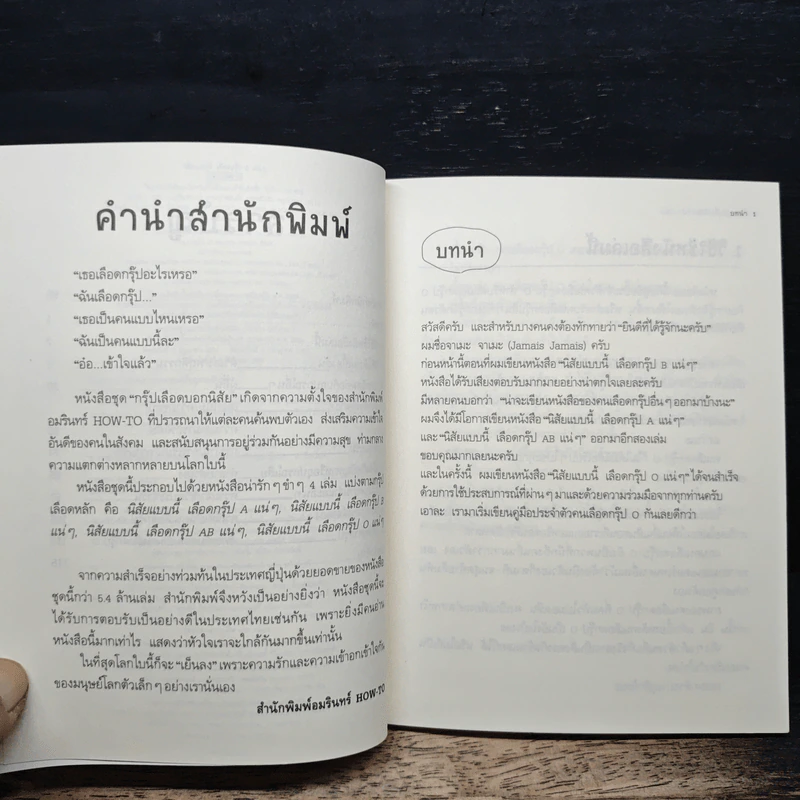 คำนำสำนักพิมพ์
“เธอเลือดกรุ๊ปอะไรเหรอ”
“ฉันเลือดกรุ๊ป...”
“เธอเป็นคนแบบไหนเหรอ”
“ฉันเป็นคนแบบนี้ละ”
“อ๋อ...เข้าใจแล้ว”
หนังสือชุด “กรุ๊ปเลือดบอกนิสัย” เกิดจากความตั้งใจของสำนักพิมพ์
อมรินทร์ HOW-TO ที่ปรารถนาให้แต่ละคนค้นพบตัวเอง ส่งเสริมความเข้าใจ
อันดีของคนในสังคม และสนับสนุนการอยู่ร่วมกันอย่างมีความสุข ท่ามกลาง
ความแตกต่างหลากหลายบนโลกใบนี้
หนังสือชุดนี้ประกอบไปด้วยหนังสือน่ารักๆ ขำๆ 4 เล่ม แบ่งตามกรุ๊ป
เลือดหลัก คือ นิสัยแบบนี้ เลือดกรุ๊ป A แน่ๆ, นิสัยแบบนี้ เลือดกรุ๊ป B
แน่ๆ, นิสัยแบบนี้ เลือดกรุ๊ป AB แน่ๆ, นิสัยแบบนี้ เลือดกรุ๊ป O แน่ๆ
จากความสำเร็จอย่างท่วมท้นในประเทศญี่ปุ่นด้วยยอดขายของหนังสือ
ชุดนี้กว่า 5.4 ล้านเล่ม สำนักพิมพ์จึงหวังเป็นอย่างยิ่งว่า หนังสือชุดนี้จะ
ได้รับการตอบรับเป็นอย่างดีในประเทศไทยเช่นกัน เพราะยิ่งมีคนอ่าน
หนังสือนี้มากเท่าไร แสดงว่าหัวใจเราจะใกล้กันมากขึ้นเท่านั้น
ในที่สุดโลกใบนี้ก็จะ “เย็นลง” เพราะความรักและความเข้าอกเข้าใจกัน
ของมนุษย์โลกตัวเล็กๆ อย่างเรานั่นเอง
สำนักพิมพ์อมรินทร์ HOW-TO
บทนำ 1
บทนำ
สวัสดีครับ และสำหรับบางคนคงต้องทักทายว่า “ยินดีที่ได้รู้จักนะครับ”
ผมชื่อจาเมะ จาเมะ (Jamais Jamais) ครับ
ก่อนหน้านี้ตอนที่ผมเขียนหนังสือ “นิสัยแบบนี้ เลือดกรุ๊ป B แน่ๆ”
หนังสือได้รับเสียงตอบรับมากมายอย่างน่าตกใจเลยละครับ
มีหลายคนบอกว่า “น่าจะเขียนหนังสือของคนเลือดกรุ๊ปอื่นๆ ออกมาบ้างนะ”
ผมจึงได้มีโอกาสเขียนหนังสือ “นิสัยแบบนี้ เลือดกรุ๊ป A แน่ๆ”
และ “นิสัยแบบนี้ เลือดกรุ๊ป AB แน่ๆ” ออกมาอีกสองเล่ม
ขอบคุณมากเลยนะครับ
และในครั้งนี้ ผมเขียนหนังสือ “นิสัยแบบนี้ เลือดกรุ๊ป O แน่ๆ” ได้จนสำเร็จ
ด้วยการใช้ประสบการณ์ที่ผ่านๆ มาและด้วยความร่วมมือจากทุกท่านครับ
เอาละ เรามาเริ่มเขียนคู่มือประจำตัวคนเลือดกรุ๊ป O กันเลยดีกว่า